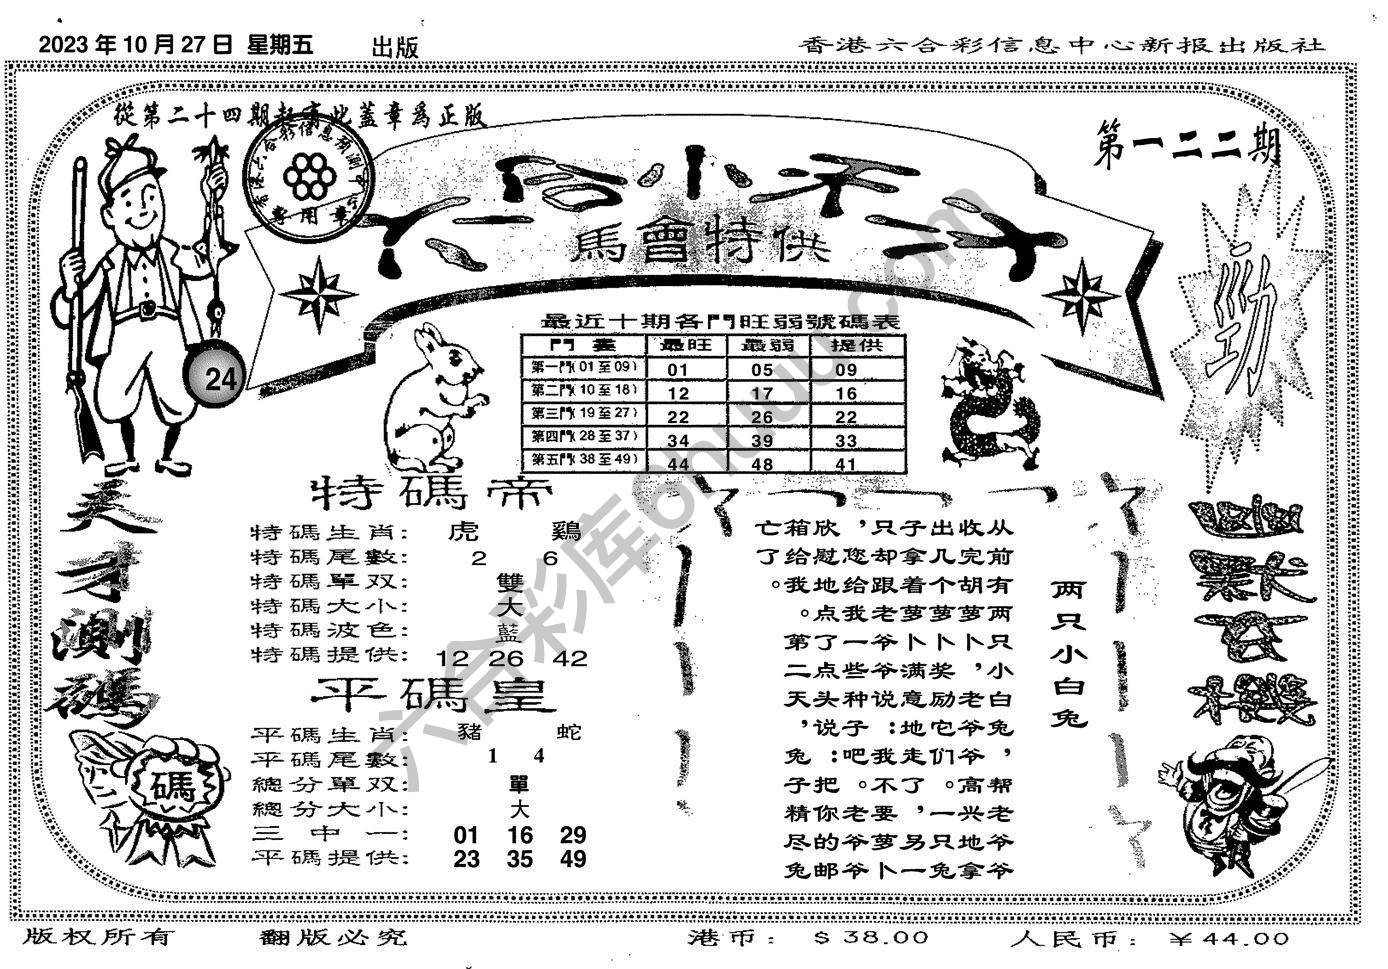 2023 年 10 月 27 日 星期五 出版
香港六合彩信息中心新报出版社
從第二十四期起寓此蓋章爲正版
專用章
第一二二期
六合小天子
馬會特供
24
勁
最近十期各門旺弱號碼表
門 最旺 最弱 提供
第一門(01至09) 01 05 09
第二門(10至18) 12 17 16
第三門(19至27) 22 26 22
第四門(28至37) 34 39 33
第五門(38至49) 44 48 41
特碼帝
特碼生肖: 虎 鷄
特碼尾數: 2 6
特碼單双: 雙
特碼大小: 大
特碼波色: 藍
特碼提供: 12 26 42
平碼皇
平碼生肖: 豬 蛇
平碼尾數: 1 4
總分單双: 單
總分大小: 大
三中一: 01 16 29
平碼提供: 23 35 49
天才測碼
碼
两只小白兔
从前有两只小白兔,帮老爷爷
收完胡萝卜,老爷爷高兴地拿
出几个萝卜奖励它们。一只兔
子拿着萝卜满意地走了,另一
只却跟老爷爷说:我不要萝卜
,您给我一些种子吧。老爷爷
欣慰地点了点头说:把你的邮
箱给我。第二天,兔子精尽兔
亡了。
版权所有 翻版必究 港币: $38.00 人民币: ￥44.00
六合彩库6huu.com